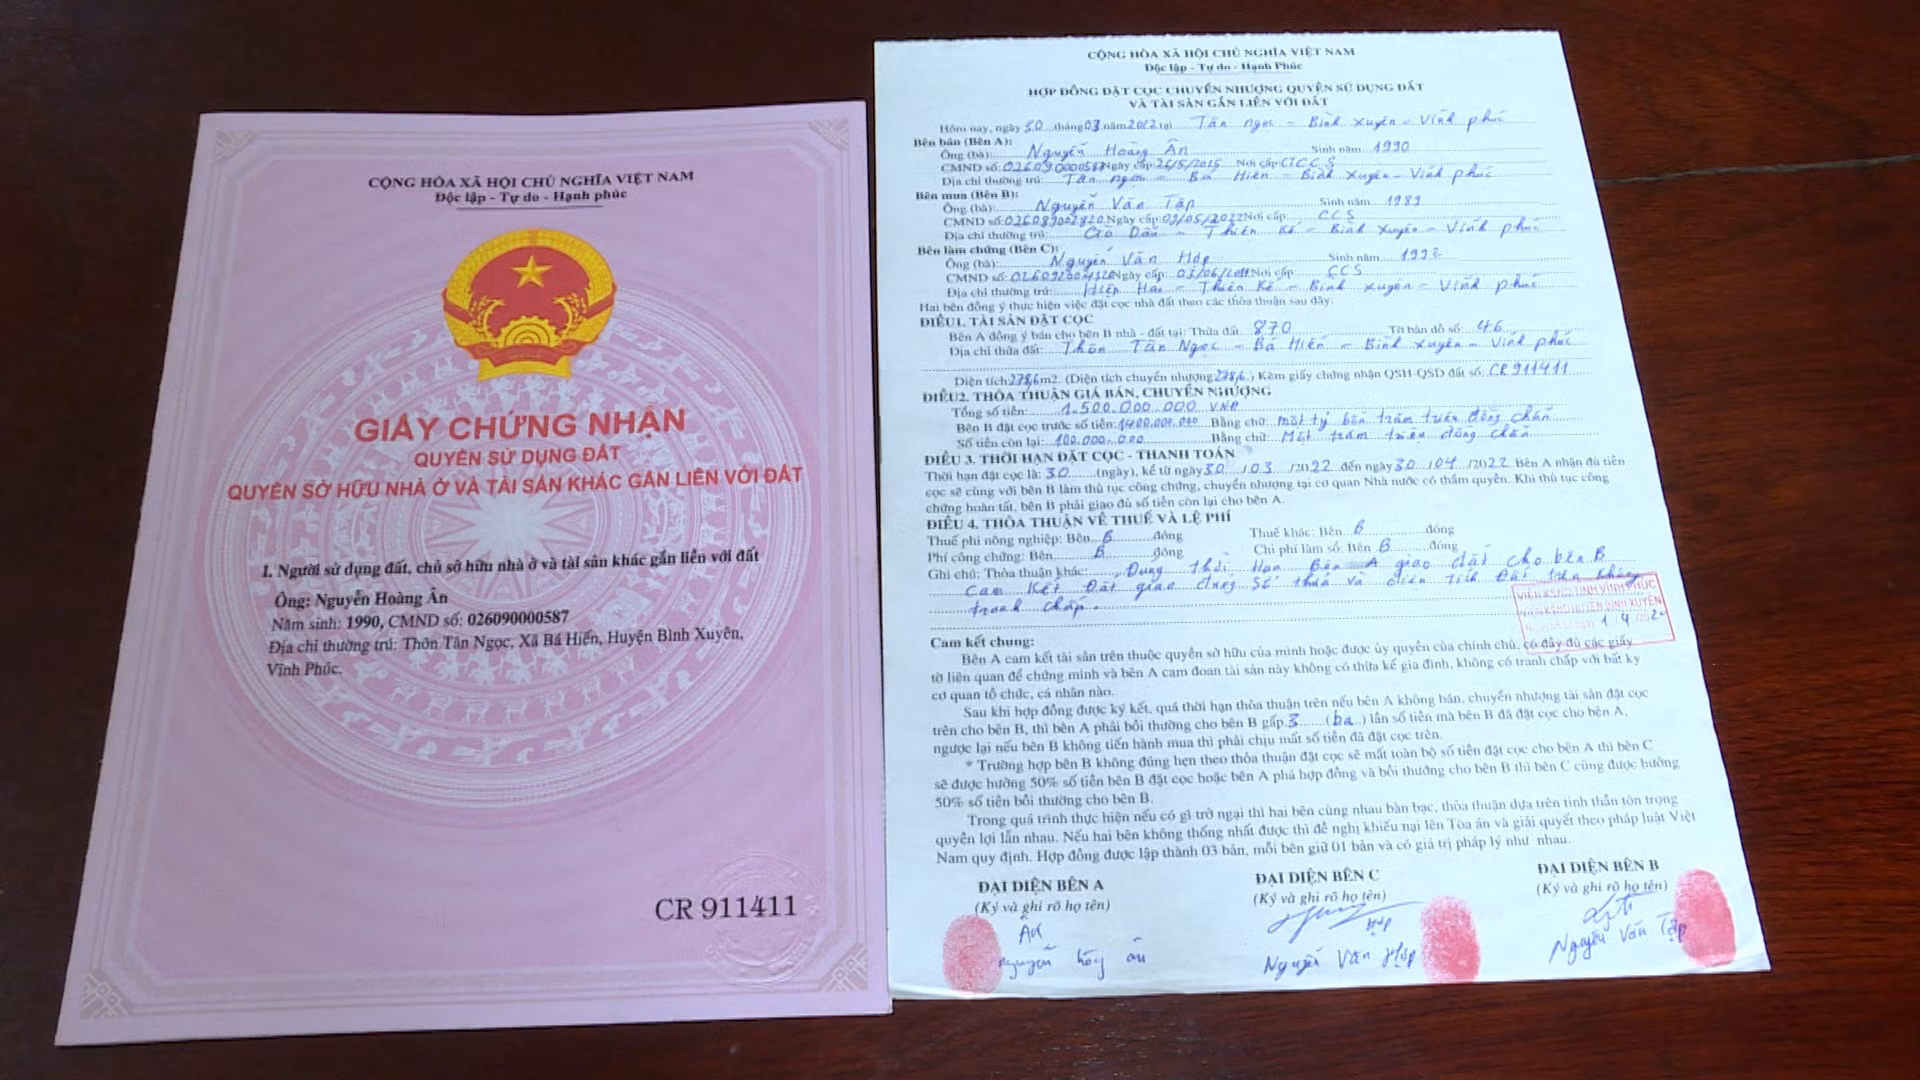 CỘNG HÒA XÃ HỘI CHỦ NGHĨA VIỆT NAM
Độc lập - Tự do - Hạnh phúc
GIẤY CHỨNG NHẬN
QUYỀN SỬ DỤNG ĐẤT
QUYỀN SỞ HỮU NHÀ Ở VÀ TÀI SẢN KHÁC GẮN LIỀN VỚI ĐẤT
I. Người sử dụng đất, chủ sở hữu nhà ở và tài sản khác gắn liền với đất
Ông: Nguyễn Hoàng Ân
Năm sinh: 1990, CMND số: 026090000587
Địa chỉ thường trú: Thôn Tân Ngọc, Xã Bá Hiến, Huyện Bình Xuyên,
Vĩnh Phúc.
CR 911411
CỘNG HÒA XÃ HỘI CHỦ NGHĨA VIỆT NAM
Độc lập - Tự do - Hạnh Phúc
HỢP ĐỒNG ĐẶT CỌC CHUYỂN NHƯỢNG QUYỀN SỬ DỤNG ĐẤT
VÀ TÀI SẢN GẮN LIỀN VỚI ĐẤT
Hôm nay, ngày 30 tháng 03 năm 2022 tại Tân ngọc - Bình Xuyên - Vĩnh phúc
Bên bán (Bên A):
Ông (bà): Nguyễn Hoàng Ân Sinh năm 1990
CMND số: 026090000587 Ngày cấp: Nơi cấp:
Địa chỉ thường trú: Tân ngọc - Bá Hiến - Bình Xuyên - Vĩnh phúc
Bên mua (Bên B):
Ông (bà): Nguyễn Văn Tập Sinh năm 1989
CMND số: 026089002820 Ngày cấp: Nơi cấp: CCS
Địa chỉ thường trú: Thiện Kế - Bình Xuyên - Vĩnh phúc
Bên làm chứng (Bên C):
Ông (bà): Nguyễn Văn Hợp Sinh năm 1992
CMND số: Ngày cấp: Nơi cấp CCS
Địa chỉ thường trú: Thiện Kế - Bình Xuyên - Vĩnh phúc
Hai bên đồng ý thực hiện việc đặt cọc nhà đất theo các thỏa thuận sau đây:
ĐIỀU 1. TÀI SẢN ĐẶT CỌC
Bên A đồng ý bán cho bên B nhà - đất tại: Thửa đất 870 Tờ bản đồ số: 46
Địa chỉ thửa đất: Thôn Tân Ngọc - Bá Hiến - Bình Xuyên - Vĩnh phúc
Diện tích 278,6 m2. (Diện tích chuyển nhượng 278,6.) Kèm giấy chứng nhận QSH-QSD đất số: CR 911411
ĐIỀU 2. THỎA THUẬN GIÁ BÁN, CHUYỂN NHƯỢNG
Tổng số tiền: 1.500.000.000 VNĐ
Bên B đặt cọc trước số tiền: 1400.000.000 Bằng chữ: một tỷ bốn trăm triệu đồng chẵn
Số tiền còn lại: 100.000.000 Bằng chữ: Một trăm triệu đồng chẵn
ĐIỀU 3. THỜI HẠN ĐẶT CỌC - THANH TOÁN
Thời hạn đặt cọc là: 30 (ngày), kể từ ngày 30 /03 /2022 đến ngày 30 /04 /2022 Bên A nhận đủ tiền
cọc sẽ cùng với bên B làm thủ tục công chứng, chuyển nhượng tại cơ quan Nhà nước có thẩm quyền. Khi thủ tục công
chứng hoàn tất, bên B phải giao đủ số tiền còn lại cho bên A.
ĐIỀU 4. THỎA THUẬN VỀ THUẾ VÀ LỆ PHÍ
Thuế phi nông nghiệp: Bên B đóng Thuế khác: Bên B đóng
Phí công chứng: Bên B đóng Chi phí làm sổ: Bên B đóng
Ghi chú: Thỏa thuận khác: Đúng thời Hạn Bên A giao đất cho bên B
Cam kết Đất giao đúng số thửa và diện tích Đất trên không
tranh chấp.
VIỆN KSND TỈNH VĨNH PHÚC
VIỆN KSND HUYỆN BÌNH XUYÊN
Cam kết chung:
Bên A cam kết tài sản trên thuộc quyền sở hữu của mình hoặc được ủy quyền của chính chủ, có đầy đủ các giấy
tờ liên quan để chứng minh và bên A cam đoan tài sản này không có thừa kế gia đình, không có tranh chấp với bất kỳ
cơ quan tổ chức, cá nhân nào.
Sau khi hợp đồng được ký kết, quá thời hạn thỏa thuận trên nếu bên A không bán, chuyển nhượng tài sản đặt cọc
trên cho bên B, thì bên A phải bồi thường cho bên B gấp 3 (ba) lần số tiền mà bên B đã đặt cọc cho bên A,
ngược lại nếu bên B không tiến hành mua thì phải chịu mất số tiền đã đặt cọc trên.
* Trường hợp bên B không đúng hẹn theo thỏa thuận đặt cọc sẽ mất toàn bộ số tiền đặt cọc cho bên A thì bên C
sẽ được hưởng 50% số tiền bên B đặt cọc hoặc bên A phá hợp đồng và bồi thường cho bên B thì bên C cũng được hưởng
50% số tiền bồi thường cho bên B.
Trong quá trình thực hiện nếu có gì trở ngại thì hai bên cùng nhau bàn bạc, thỏa thuận dựa trên tinh thần tôn trọng
quyền lợi lẫn nhau. Nếu hai bên không thống nhất được thì đề nghị khiếu nại lên Tòa án và giải quyết theo pháp luật Việt
Nam quy định. Hợp đồng được lập thành 03 bản, mỗi bên giữ 01 bản và có giá trị pháp lý như nhau.
ĐẠI DIỆN BÊN A ĐẠI DIỆN BÊN C ĐẠI DIỆN BÊN B
(Ký và ghi rõ họ tên) (Ký và ghi rõ họ tên) (Ký và ghi rõ họ tên)
Nguyễn Văn Hợp Nguyễn Văn Tập